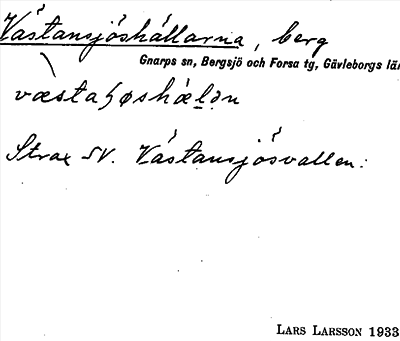 Västansjöshällarna, berg
Gnarps sn, Bergsjö och Forsa tg, Gävleborgs län
væstaɧøshæl̠ən
Strax SV. Västansjösvallen.
LARS LARSSON 1933